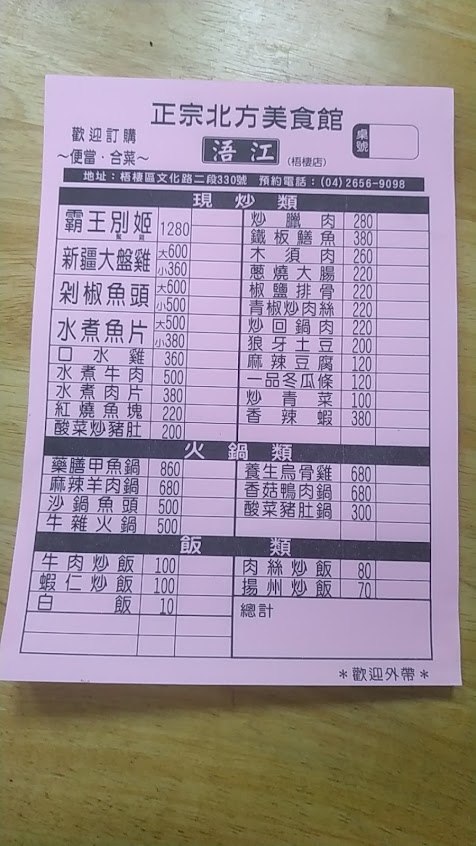 正宗北方美食館
歡迎訂購
～便當．合菜～
浯江
(梧棲店)
桌號
地址：梧棲區文化路二段330號 預約電話：(04)2656-9098
現炒類
霸王別姬 1280
新疆大盤雞 大600 小360
剁椒魚頭 大600 小500
水煮魚片 大500 小380
口水雞 360
水煮牛肉 500
水煮肉片 380
紅燒魚塊 220
酸菜炒豬肚 200
炒臘肉 280
鐵板鱔魚 380
木須肉 260
蔥燒大腸 220
椒鹽排骨 220
青椒炒肉絲 220
炒回鍋肉 220
狼牙土豆 200
麻辣豆腐 120
一品冬瓜條 120
炒青菜 100
香辣蝦 380
火鍋類
藥膳甲魚鍋 860
麻辣羊肉鍋 680
沙鍋魚頭 500
牛雜火鍋 500
養生烏骨雞 680
香菇鴨肉鍋 680
酸菜豬肚鍋 300
飯類
牛肉炒飯 100
蝦仁炒飯 100
白飯 10
肉絲炒飯 80
揚州炒飯 70
總計
＊歡迎外帶＊